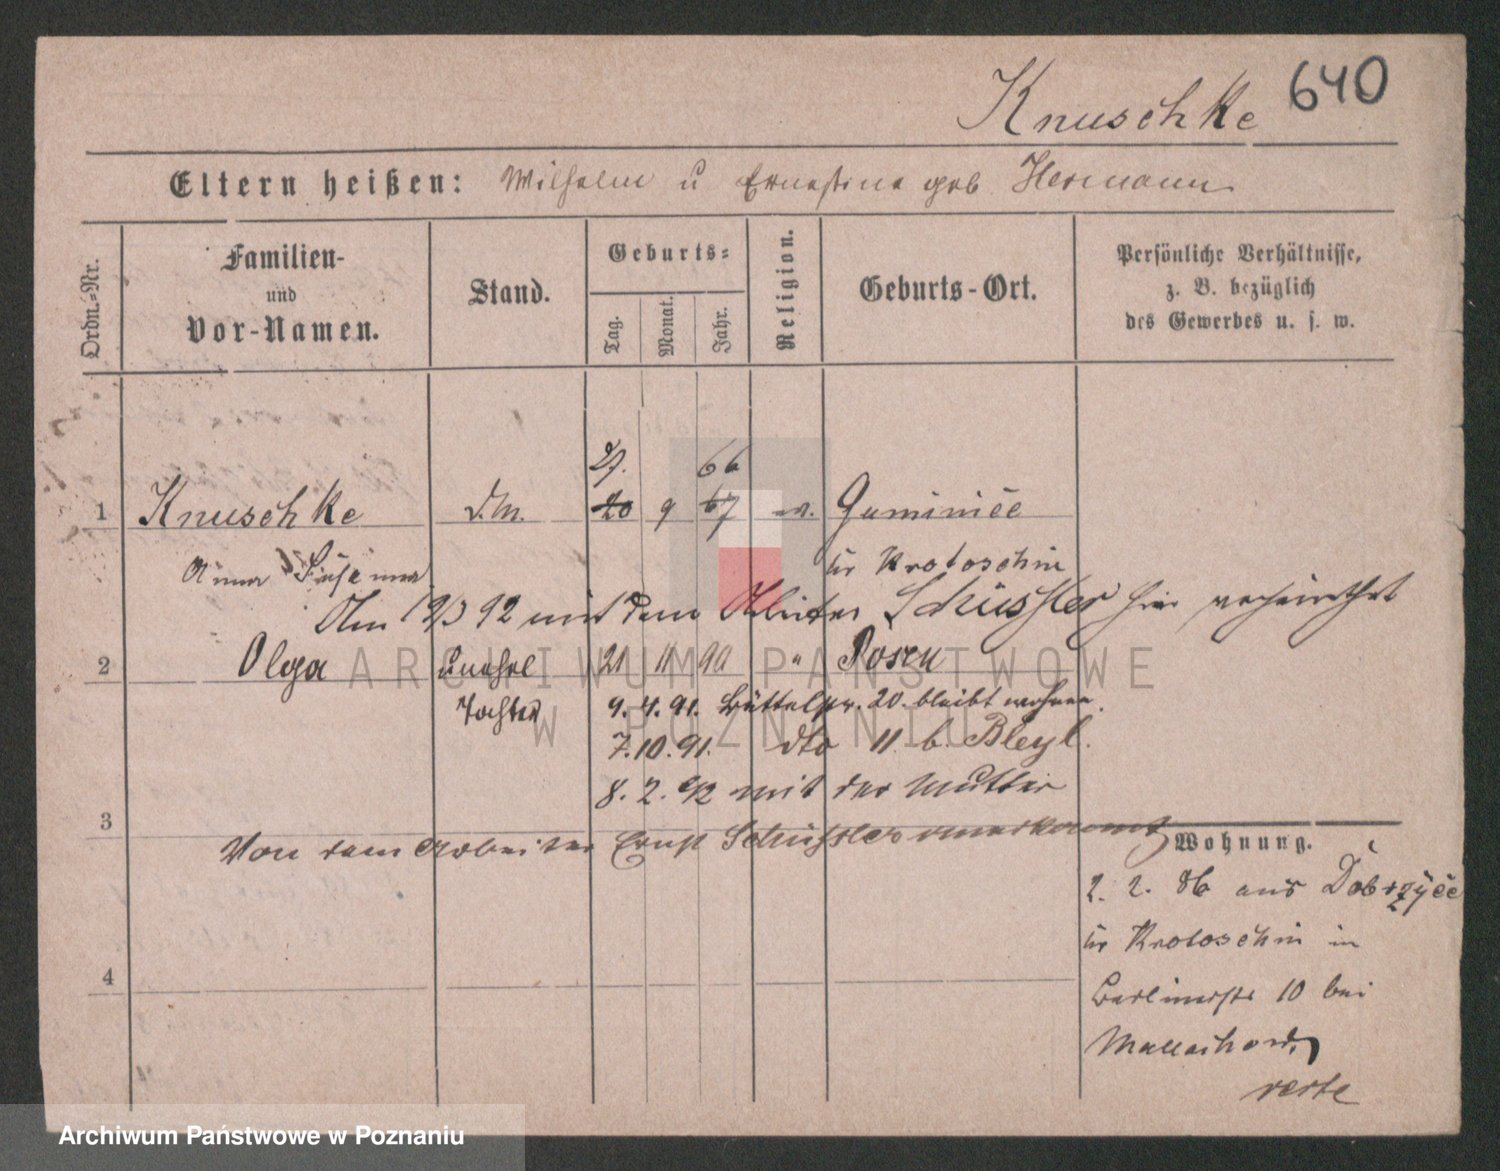 Knuschke 640
Eltern heißen: Wilhelm u Ernestine geb Hermann
Ordn.=Nr.
Familien-
und
Vor-Namen.
Stand.
Geburts=
Tag.
Monat.
Jahr.
Religion.
Geburts-Ort.
Persönliche Verhältnisse,
z. B. bezüglich
des Gewerbes u. s. w.
27. 66
1 Knuschke d.M. 20 9 67 ev. Guminice
Anna Susanna Kr Krotoschin
Am 19/3 92 mit dem Schüssler hier verheirathet
2 Olga unehel 21 11 90 " Posen
Tochter 9. 4. 91. Büttelstr. 20. bleibt wohnen.
7. 10. 91. dto 11 b. Bleyl.
8. 2. 92 mit der Mutter
3
Von dem Arbeiter Ernst Schüssler anerkannt
Wohnung.
2. 2. 86 aus Dobrzyce
Kr Krotoschin in
4
Berlinerstr 10 bei
verte
ARCHIWUM PAŃSTWOWE
W POZNANIU
Archiwum Państwowe w Poznaniu